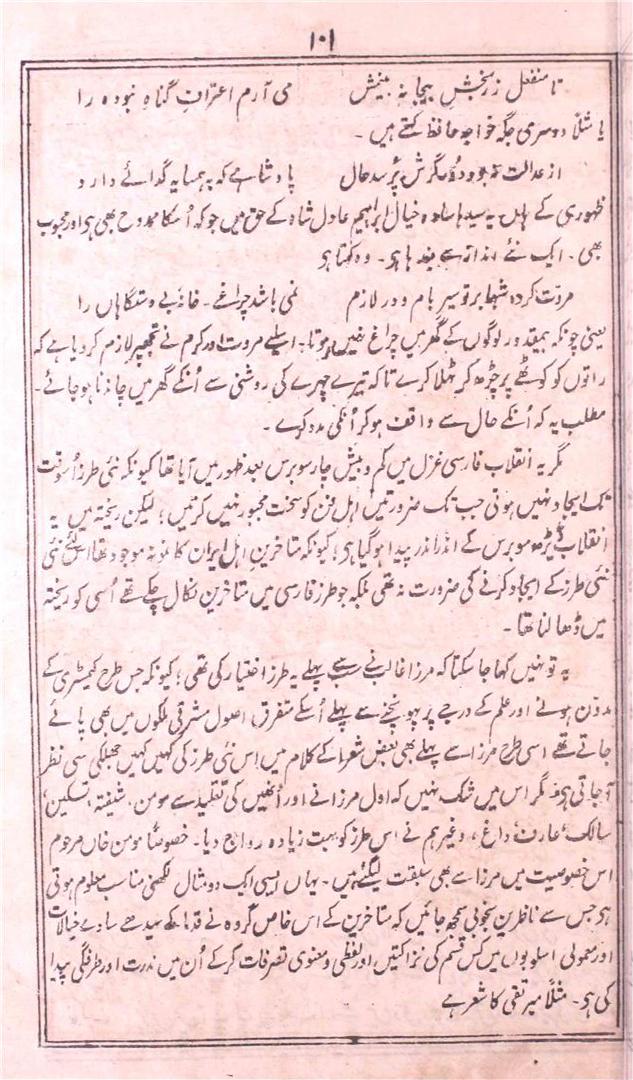 ۱۰۱
تا منفعل ز رنجش بیجا نہ بینش می آرم اعتراف گناہِ نبودہ را
یا مثلاً دوسری جگہ خواجہ حافظ کہتے ہیں ۔
از عدالت نبود دور گرش پُرسد حال پادشاہے کہ بہ ہمسایہ گدائے دارد
ظہوری کے ہاں یہ سیدھا سادہ خیال ابراہیم عادل شاہ کے حق میں جو کہ اُسکا ممدوح بھی ہی اور محبوب
بھی ۔ ایک نئے انداز سے بندھا ہی ۔ وہ کہتا ہی
مروت کردہ شبہا بر تو سیرِ بام و در لازم نمی باشد چراغے ۔ خانہ بے دستگاہاں را
یعنی چونکہ بیمقدور لوگوں کے گھر میں چراغ نہیں ہوتا ۔ اسلیے مروت اور کرم نے تجھپر لازم کردیا ہے کہ
راتوں کو کوٹھے پر چڑھ کر ٹہلا کرے تاکہ تیرے چہرے کی روشنی سے اُنکے گھر میں چاندنا ہوجائے ۔
مطلب یہ کہ اُنکے حال سے واقف ہوکر اُنکی مدد کرے ۔
مگر یہ انقلاب فارسی غزل میں کم و بیش چار سو برس بعد ظہور میں آیا تھا کیونکہ نئی طرز اُسوقت
تک ایجاد نہیں ہوتی جب تک ضرورتیں اہل فن کو سخت مجبور نہیں کرتیں ؛ لیکن ریختہ میں یہ
انقلاب ڈیڑھ سو برس کے اندر اندر پیدا ہوگیا ہی ؛ کیونکہ متاخرین اہل ایران کا نمونہ موجود تھا اسلیے نئی
نئی طرز کے ایجاد کرنے کی ضرورت نہ تھی بلکہ جو طرز فارسی میں متاخرین نکال چکے تھے اُسی کو ریختہ
میں ڈھالنا تھا ۔
یہ تو نہیں کہا جا سکتا کہ مرزا غالب نے سب سے پہلے یہ طرز اختیار کی تھی ؛ کیونکہ جس طرح کیمسٹری کے
مدوّن ہونے اور علم کے درجے پر پہونچنے سے پہلے اُسکے متفرق اصول مشرقی ملکوں میں بھی پائے
جاتے تھے اسی طرح مرزا سے پہلے بھی بعض شعرا کے کلام میں اس نئی طرز کی کہیں کہیں جھلکی سی نظر
آجاتی ہی ۔ مگر اس میں شک نہیں کہ اول مرزا نے اور اُنھیں کی تقلید سے مومن ، شیفتہ ، تسکین ،
سالک ، عارف ، داغ ، وغیرہم نے اس طرز کو بہت زیادہ رواج دیا ۔ خصوصاً مومن خاں مرحوم
اس خصوصیت میں مرزا سے بھی سبقت لیگئے ہیں ۔ یہاں ایسی ایک دو مثال لکھنی مناسب معلوم ہوتی
ہی جس سے ناظرین بخوبی سمجھ جائیں کہ متاخرین کے اس خاص گروہ نے قدما کے سیدھے سادے خیالات
اور معمولی اسلوبوں میں کس قسم کی نزاکتیں اور لفظی و معنوی تصرفات کرکے اُن میں ندرت اور طرفگی پیدا
کی ہی ۔ مثلاً میر تقی کا شعر ہے